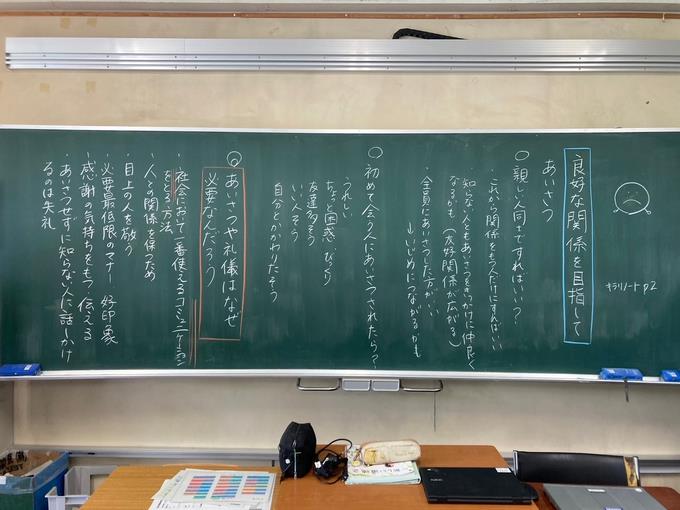 キラリノートp2
良好な関係を目指して
あいさつ
○親しい人同士ですればいい？
・これから関係をもつ人だけにすればいい
知らない人ともあいさつをきっかけに仲良く
なるかも（友好関係が広がる）
・全員にあいさつした方がいい
↓いじめにつながるかも
○初めて会う人にあいさつされたら？
うれしい
ちょっと困惑 びっくり
友達多そう
いい人そう
自分とかかわりたそう
◎あいさつや礼儀はなぜ
必要なんだろう
・社会において一番使えるコミュニケーション
をとる方法
・人との関係を保つため
・目上の人を敬う
・必要最低限のマナー 好印象
・感謝の気持ちをもつ 伝える
・あいさつせずに知らない人に話しかけ
るのは失礼